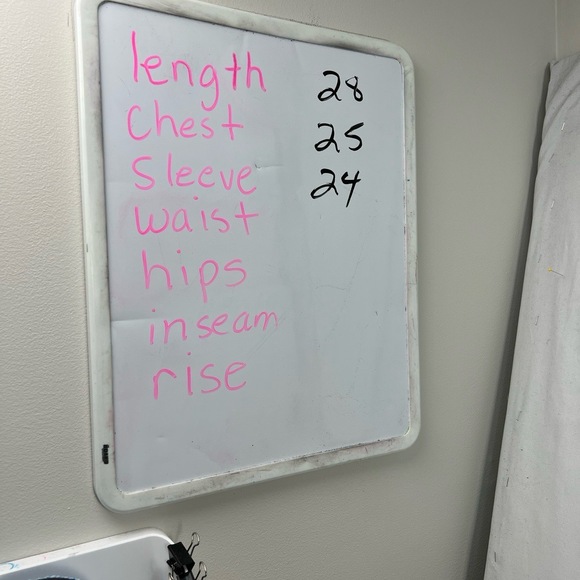 length 28
Chest 25
Sleeve 24
waist
hips
inseam
rise